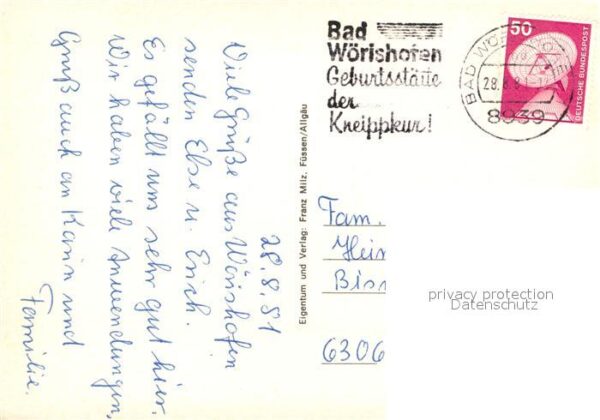 28.8.81
Viele Grüße aus Wörishofen
senden Else u. Erich.
Es gefällt uns sehr gut hier.
Wir haben viele Anwendungen,
Gruß auch an Karin und
Familie.
Eigentum und Verlag: Franz Milz, Füssen/Allgäu
Bad
Wörishofen
Geburtsstätte
der
Kneippkur!
BAD WÖ
28. 8.
8939
50
DEUTSCHE BUNDESPOST
Fam.
Hein
Biss
6306
privacy protection
Datenschutz